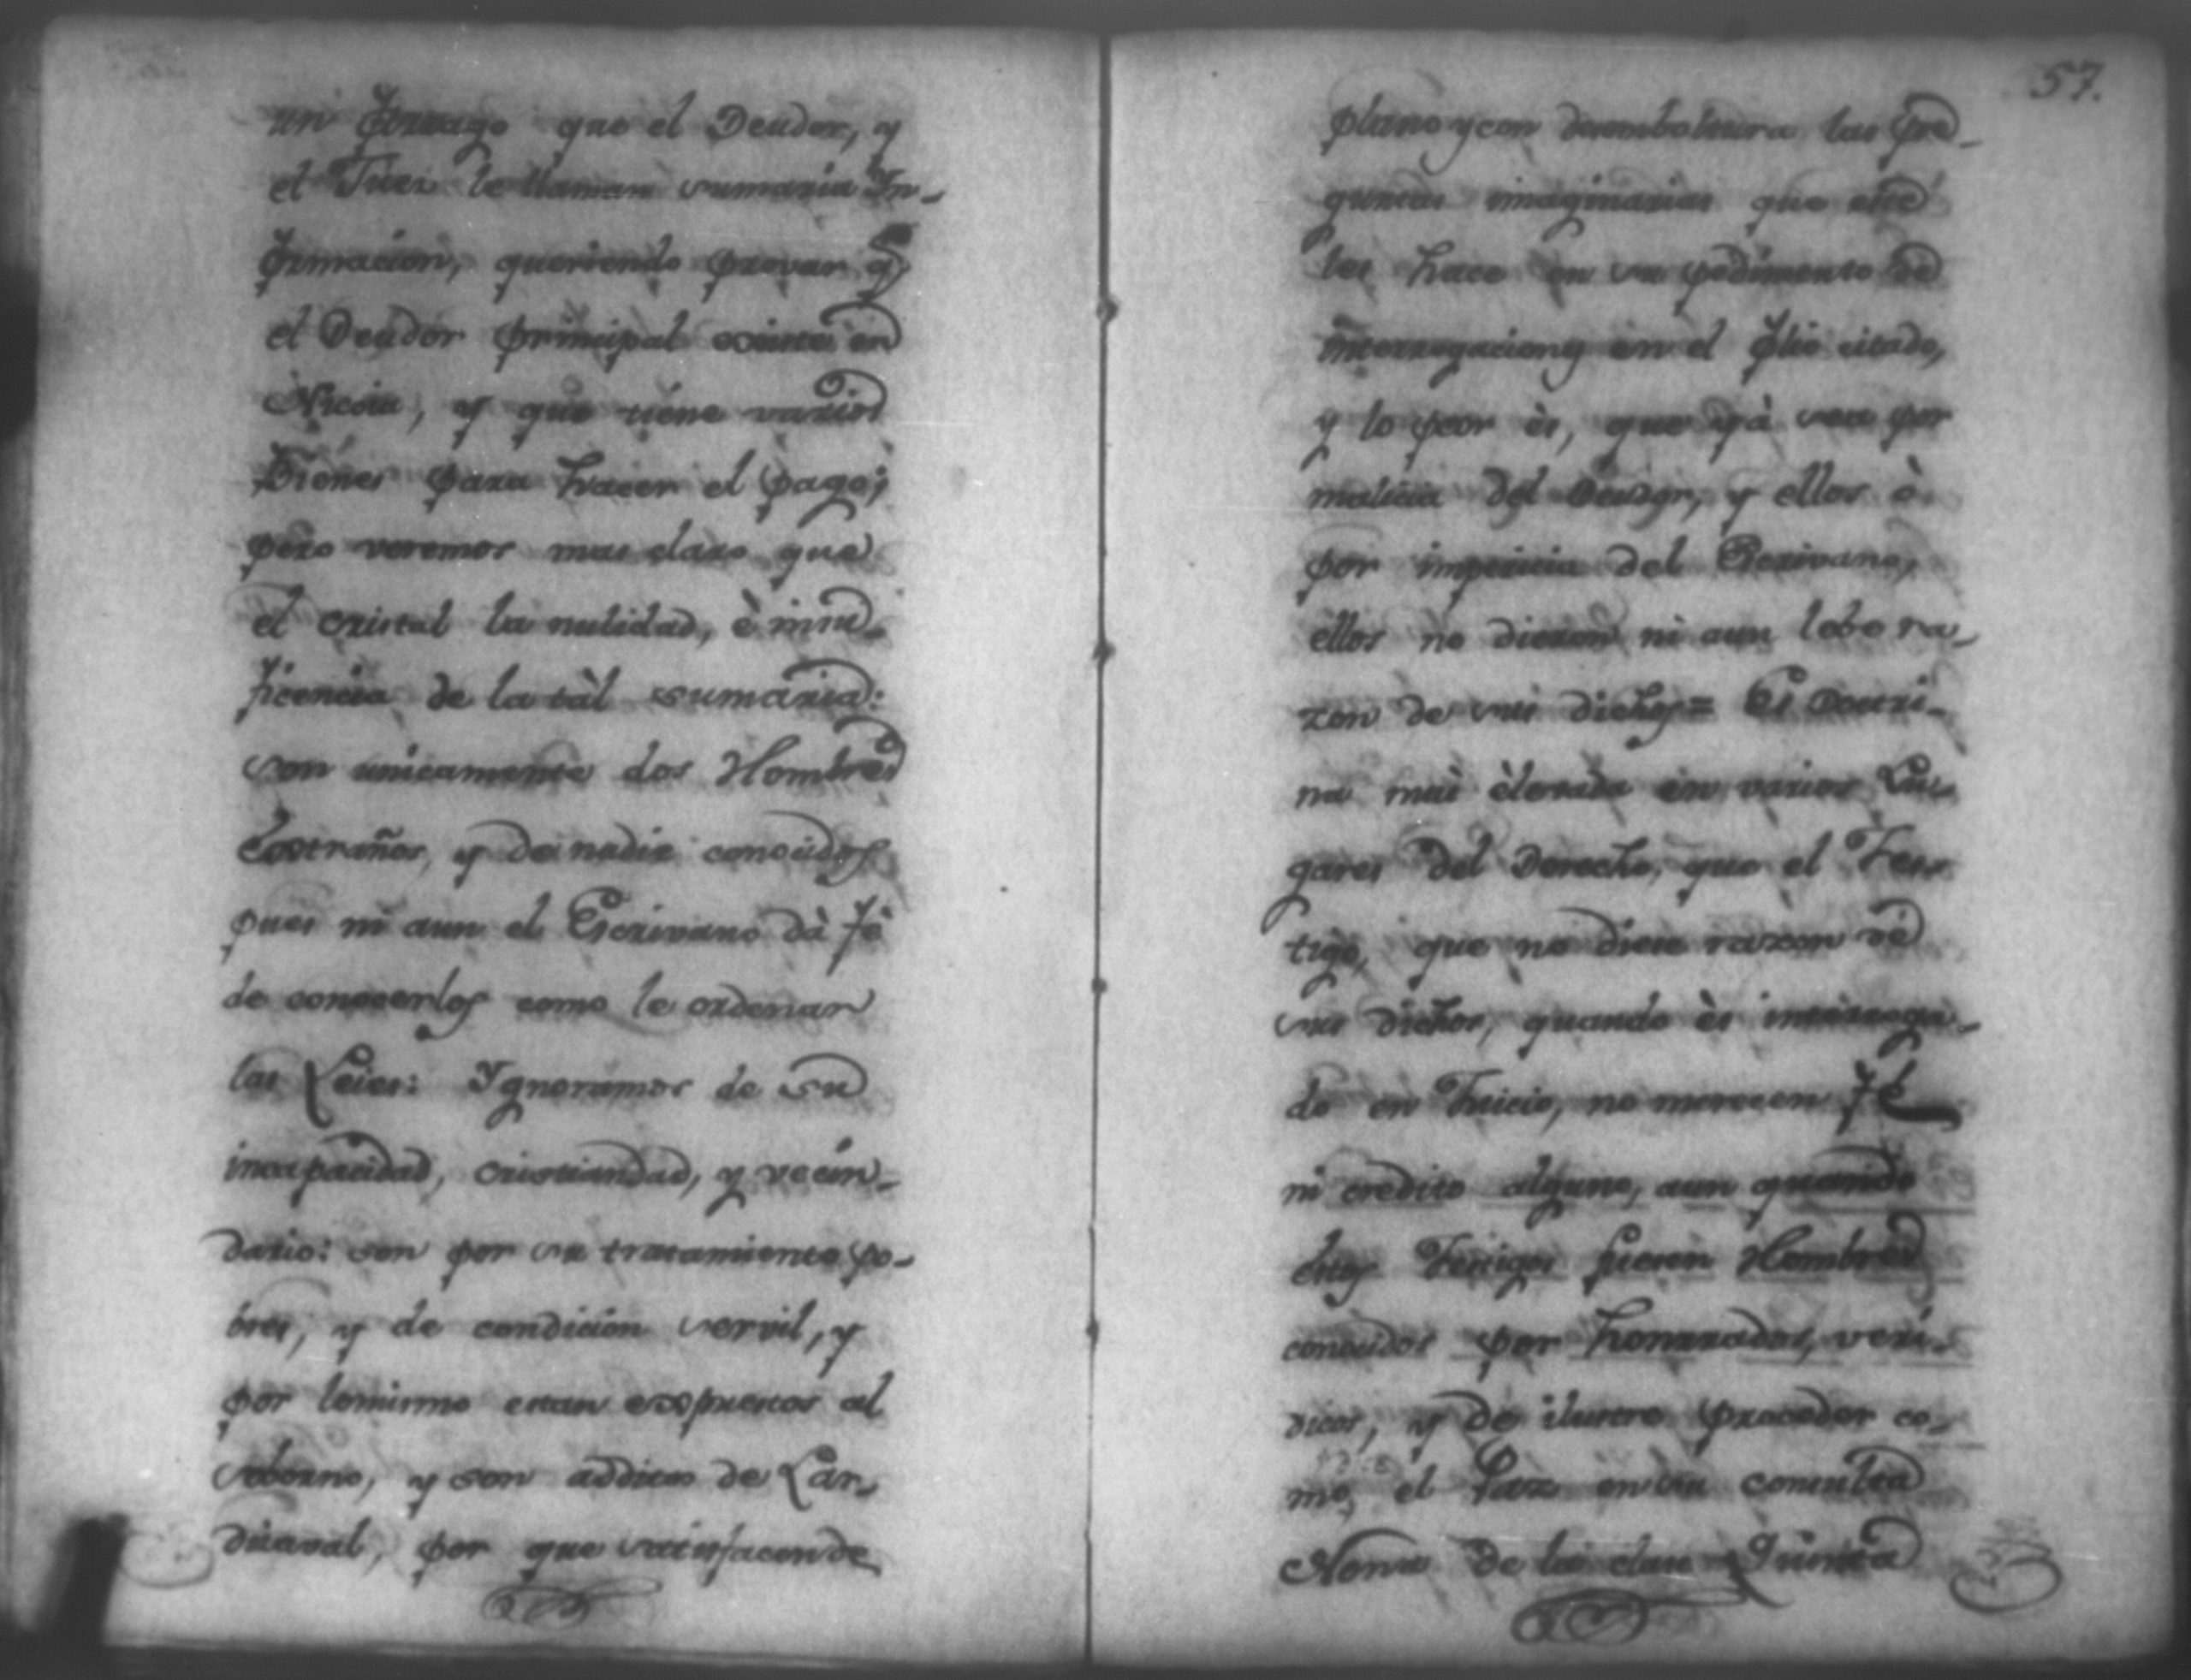 un que el Deudor, y
el Juez le llaman sumaria In-
formacion, queriendo provar q
el Deudor principal existe en
Nicoia, y que tiene varios
Bienes para hacer el pago;
pero veremos mas claro que
el cristal la nulidad, è insu-
ficencia de la tàl sumaria:
son unicamente dos Hombres
Extraños, y de nadie conocidos
pues ni aun el Escrivano dà fè
de conocerlos como le ordenan
las Leies: Ygnoramos de su
incapacidad, cristiandad, y vecin-
dario: son por su tratamiento po-
bres, y de condicion servil, y
por lo mismo estan expuestos al
soborno, y son addictos de Lar-
duaval, por que satisfacen de
57.
plano y con desemboltura las pre-
guntas imaginarias que este
les hace en su pedimento de
interrogaciones en el folio citado,
y lo peor ès, que yà sea por
malicia del Deudor, y ellos ò
por impericia del Escrivano,
ellos no dieron ni aun lebe ra-
zon de sus dichos = Es Doctri-
na mui èlevada en varios Lu-
gares del Derecho, que el Tes-
tigo, que no diese razon de
sus dichos, quando ès interroga-
do en Juicio, no merecen fè
ni credito alguno, aun quando
estos Testigos fuesen Hombres
conocidos por honrrados, veri-
dicos, y de ilustre proceder co-
mo, el Paz en su consulta
Nona de la clau Quinta